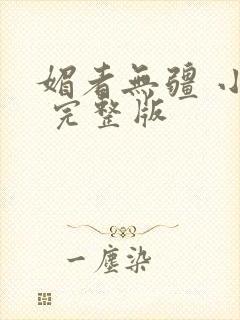 媚者無疆 小
完整版
一塵染